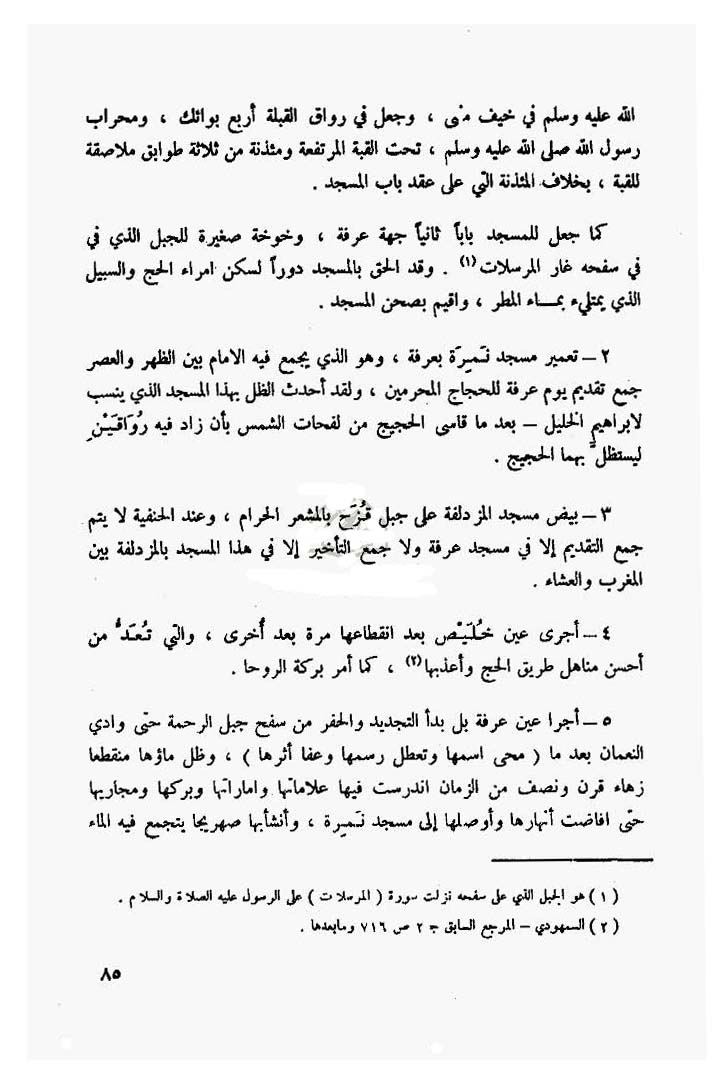 الله عليه وسلم في خيف منى ، وجعل في رواق القبلة أربع بوائك ، ومحراب
رسول الله صلى الله عليه وسلم ، تحت القبة المرتفعة ومئذنة من ثلاثة طوابق ملاصقة
للقبة ، بخلاف المئذنة التي على عقد باب المسجد .
كما جعل للمسجد باباً ثانياً جهة عرفة ، وخوخة صغيرة للجبل الذي في
في سفحه غار المرسلات (١) . وقد الحق بالمسجد دوراً لسكن امراء الحج والسبيل
الذي يمتليء بمـــاء المطر ، واقيم بصحن المسجد .
٢ – تعمير مسجد نَمِرَة بعرفة ، وهو الذي يجمع فيه الامام بين الظهر والعصر
جمع تقديم يوم عرفة للحجاج المحرمين ، ولقد أحدث الظل بهذا المسجد الذي ينسب
لابراهيم الخليل – بعد ما قاسى الحجيج من لفحات الشمس بأن زاد فيه رُوَاقَيْنِ
ليستظلّ بهما الحجيج .
٣ – بيض مسجد المزدلفة على جبل قُزَح بالمشعر الحرام ، وعند الحنفية لا يتم
جمع التقديم إلا في مسجد عرفة ولا جمع التأخير إلا في هذا المسجد بالمزدلفة بين
المغرب والعشاء .
٤ – أجرى عين خُلَيْص بعد انقطاعها مرة بعد أُخرى ، والتي تُعَدُّ من
أحسن مناهل طريق الحج وأعذبها (٢) ، كما أمر بركة الروحا .
٥ – أجرا عين عرفة بل بدأ التجديد والحفر من سفح جبل الرحمة حتى وادي
النعمان بعد ما ( محى اسمها وتعطل رسمها وعفا أثرها ) ، وظل ماؤها منقطعا
زهاء قرن ونصف من الزمان اندرست فيها علاماتها واماراتها وبركها ومجاريها
حتى افاضت أنهارها وأوصلها إلى مسجد نَمِرة ، وأنشأبها صهريجا يتجمع فيه الماء
( ١ ) هو الجبل الذي على سفحه نزلت سورة ( المرسلات ) على الرسول عليه الصلاة والسلام .
( ٢ ) السمهودي – المرجع السابق ج ٢ ص ٧١٦ ومابعدها .
٨٥